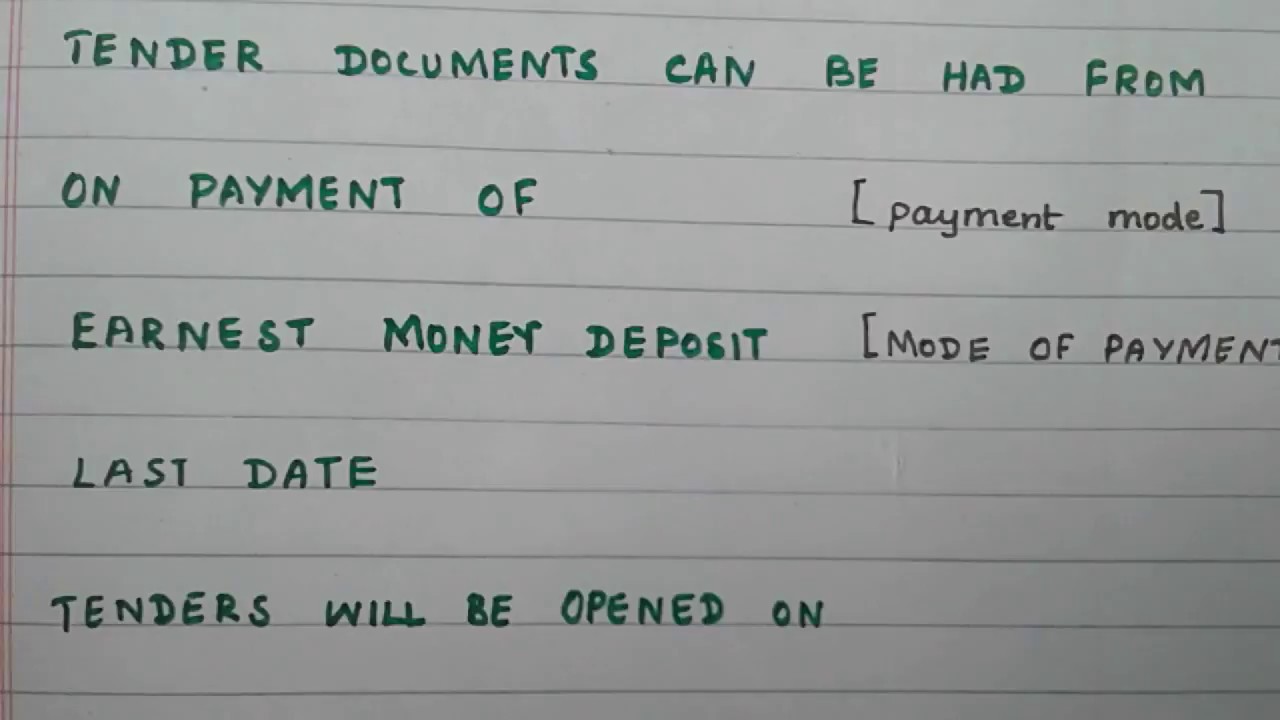 TENDER DOCUMENTS CAN BE HAD FROM
ON PAYMENT OF [payment mode]
EARNEST MONEY DEPOSIT [MODE OF PAYMENT
LAST DATE
TENDERS WILL BE OPENED ON